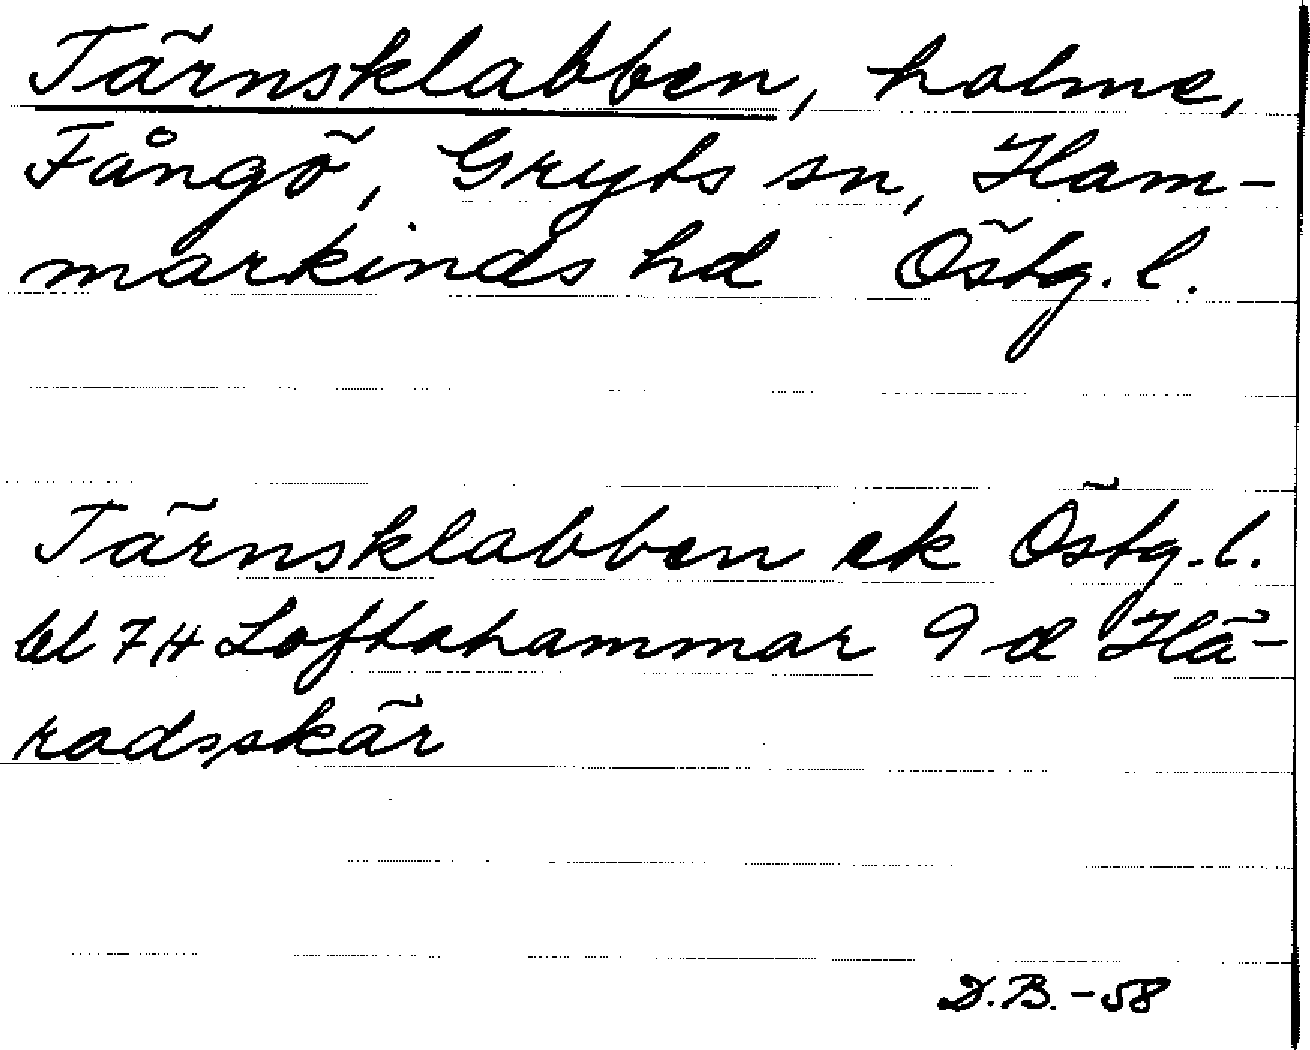 Tärnsklabben, holme,
Fångö, Gryts sn, Ham-
markinds hd Östg. l.
Tärnsklabben ek Östg. l.
bl 7 H Loftahammar 9 d Hä-
radsskär
D.B. - 58